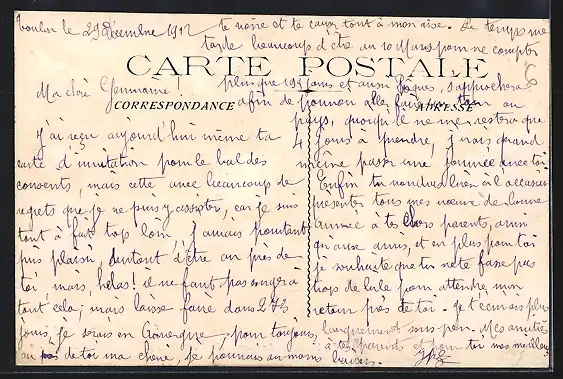 Toulon le 29 Décembre 1912
te voire et te causer tout à mon aise. Le temps me
tarde beaucoup d'être au 10 Mars pour ne compter
CARTE POSTALE
Ma chère Germaine!
plus que 192 jours et aussi Pâques s'approchera
CORRESPONDANCE
ADRESSE
afin de pouvoir aller faire un tour au
pays, quoiqu'il ne me restera que
J'ai reçu aujourd'hui même ta
4 jours à prendre, j'irais quand
carte d'invitation pour le bal des
même passer une journée avec toi
conscrits, mais cette avec beaucoup de
Enfin tu voudras bien à l'occasion
regrets que je ne puis y assister, car je suis
présenter tous mes vœux de bonne
tout à fait trop loin, j'aurais pourtant
année à tes chers parents, ainsi
pris plaisir, surtout d'être au près de
qu'aux amis, et en plus pour toi
toi mais, hélas! il ne faut pas songer à
je souhaite que tu ne te fasse pas
tout cela; mais laisse faire dans 272
trop de bile pour attendre mon
retour près de toi. Je t'écrirais plus
jours, je serais en pour toujours,
longuement sous peu. Mes amitiés
au près de toi ma chère, je pourrais au moins
à tes parents et pour toi mes meilleurs
baisers.